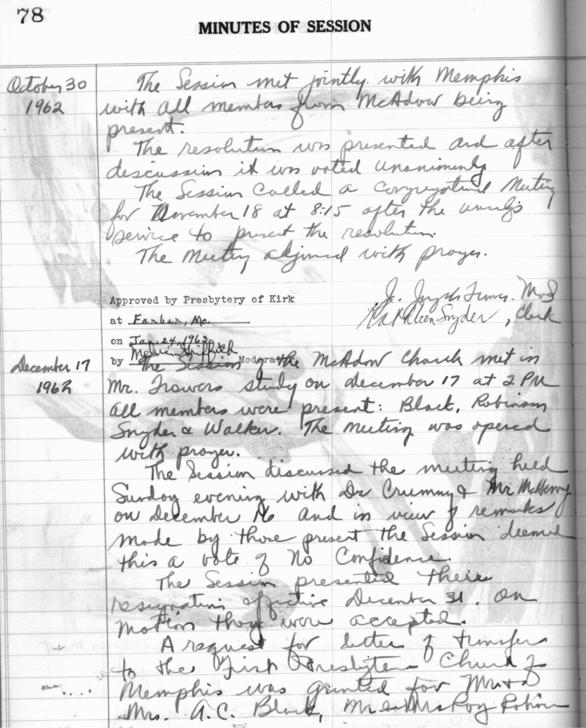 78
MINUTES OF SESSION
October 30
1962
The Session met jointly with Memphis
with all members from McAdow being
present.
The resolution was presented and after
discussion it was voted unanimously
The Session called a congregational Meeting
for November 18 at 8:15 after the
service to present the resolution.
The Meeting adjourned with prayer.
J. Mod
Kathleen Snyder, Clerk
Approved by Presbytery of Kirk
at Farber, Mo.
on Jan. 24, 1963
by Melvin Griffith Moderator
December 17
1962
The Session of the McAdow Church met in
Mr. Frowers study on december 17 at 2 PM
all members were present: Black, Robinson
Snyder & Walker. The meeting was opened
with prayer.
The Session discussed the meeting held
Sunday evening with Dr Crummy & Mr McHenry
on December 16 and in view of remarks
made by those present the Session deemed
this a vote of No Confidence.
The Session presented their
resignation effective December 31. on
motion they were accepted.
A request for letter of transfer
to the First Presbyterian Church of
Memphis was granted for Mr and
Mrs. A.C. Black, Mr and Mrs Roy